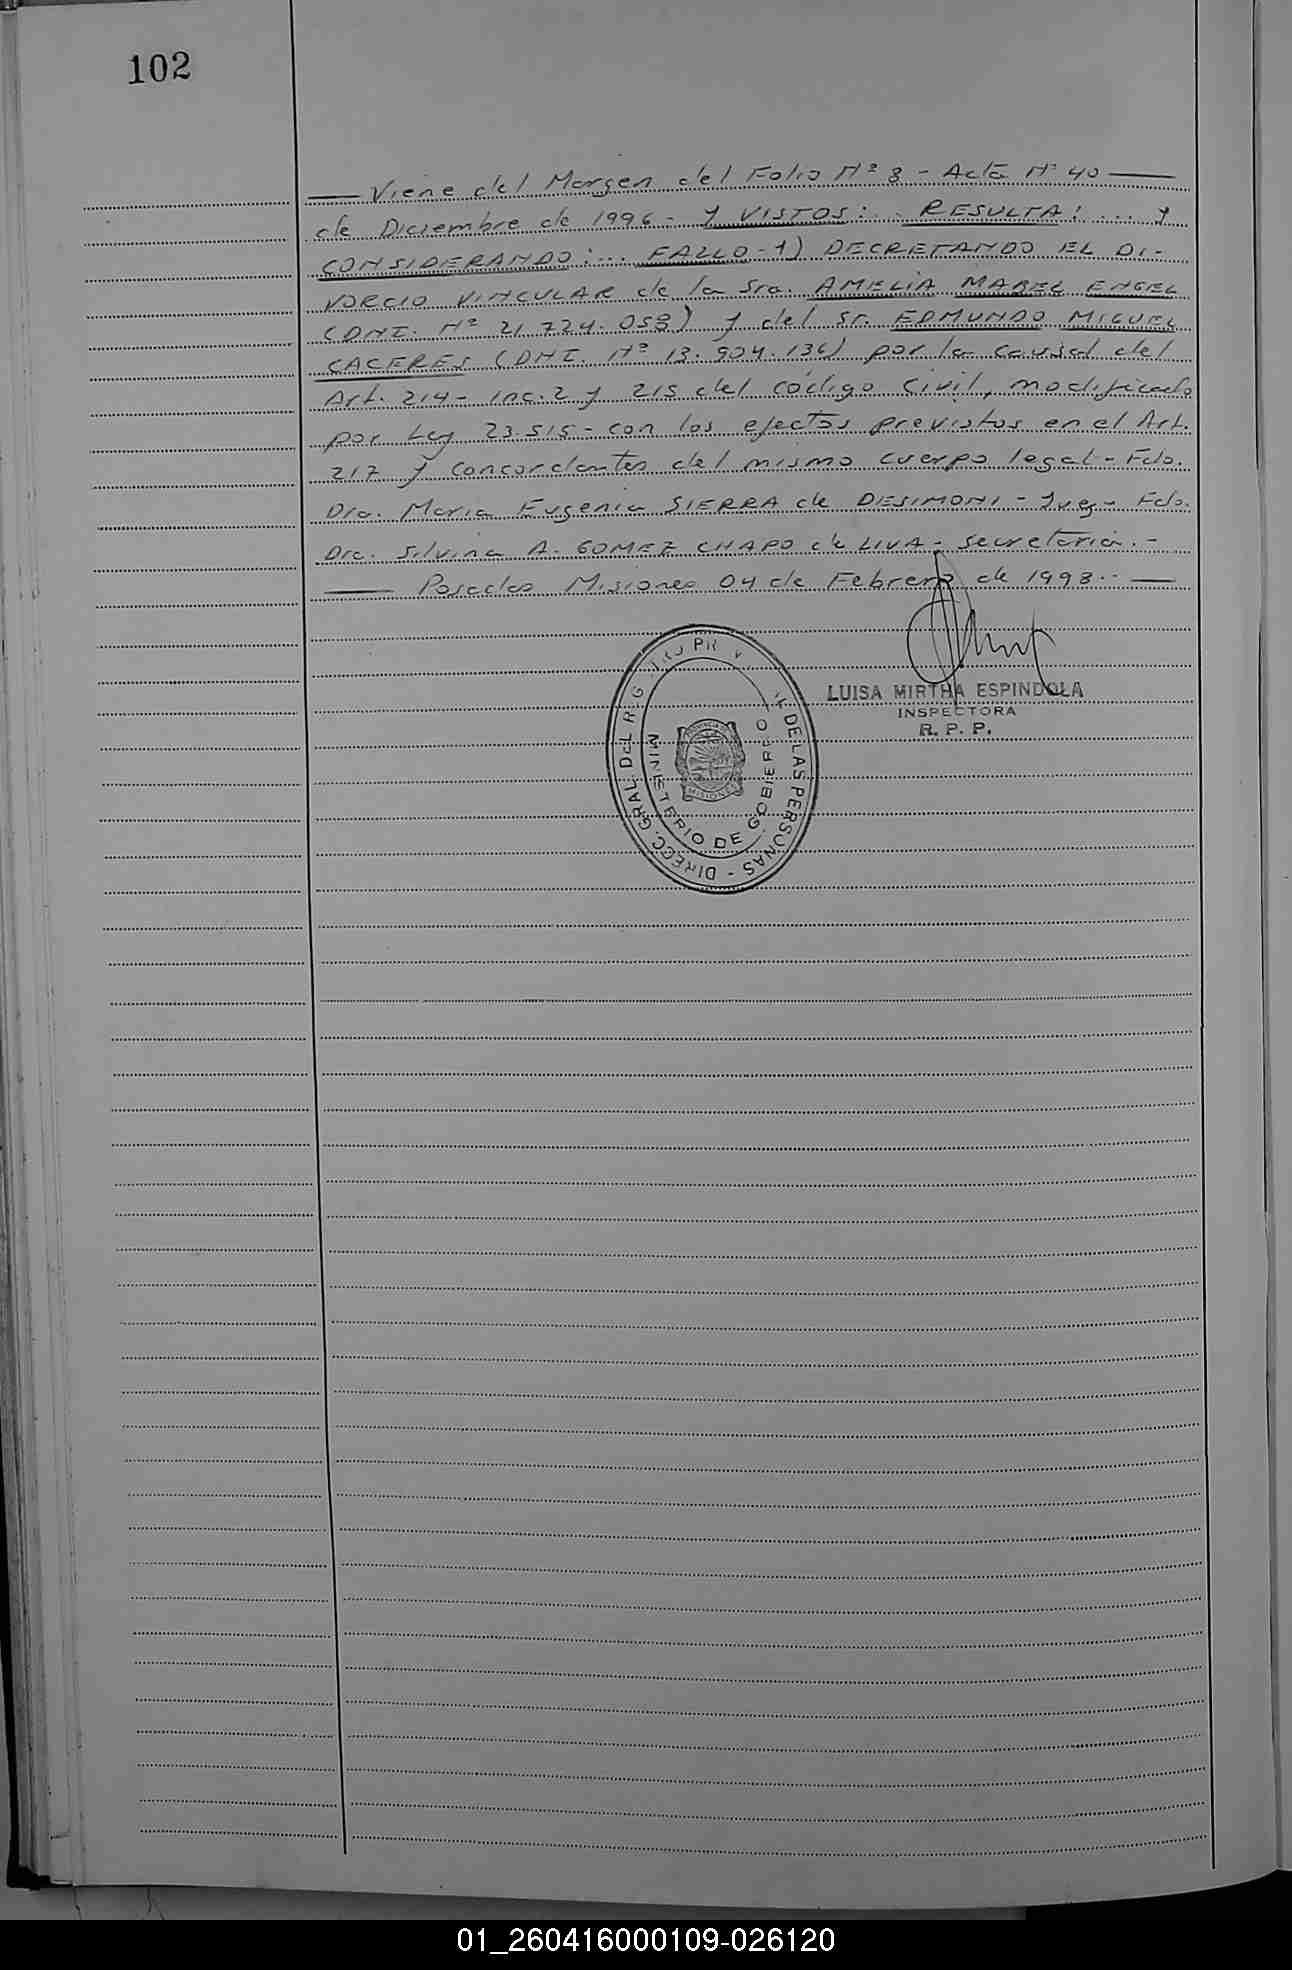 102
Viene del Margen del Folio Nº 8 - Acta Nº 40
de Diciembre de 1996 - Y VISTOS:... RESULTA: ... Y
CONSIDERANDO:... FALLO - 1) DECRETANDO EL DI-
VORCIO VINCULAR de la Sra. AMELIA MABEL ENGEL
(DNI. Nº 21.724.058) y del Sr. EDMUNDO MIGUEL
CACERES (DNI. Nº 13.904.136) por la causal del
Art. 214 - inc. 2 y 215 del código Civil, modificado
por Ley 23.515 - con los efectos previstos en el Art.
217 y concordantes del mismo cuerpo legal - Fdo.
Dra. Maria Eugenia SIERRA de DESIMONI - Juez - Fdo.
Dra. Silvina A. GOMEZ CHAPO de LIVA - Secretaria. -
Posadas Misiones 04 de Febrero de 1998. -
LUISA MIRTHA ESPINDOLA
INSPECTORA
R. P. P.
DIRECC. GRAL. DEL DE LAS PERSONAS -
MINISTERIO DE GOBIERNO
MISIONES
01_260416000109-026120